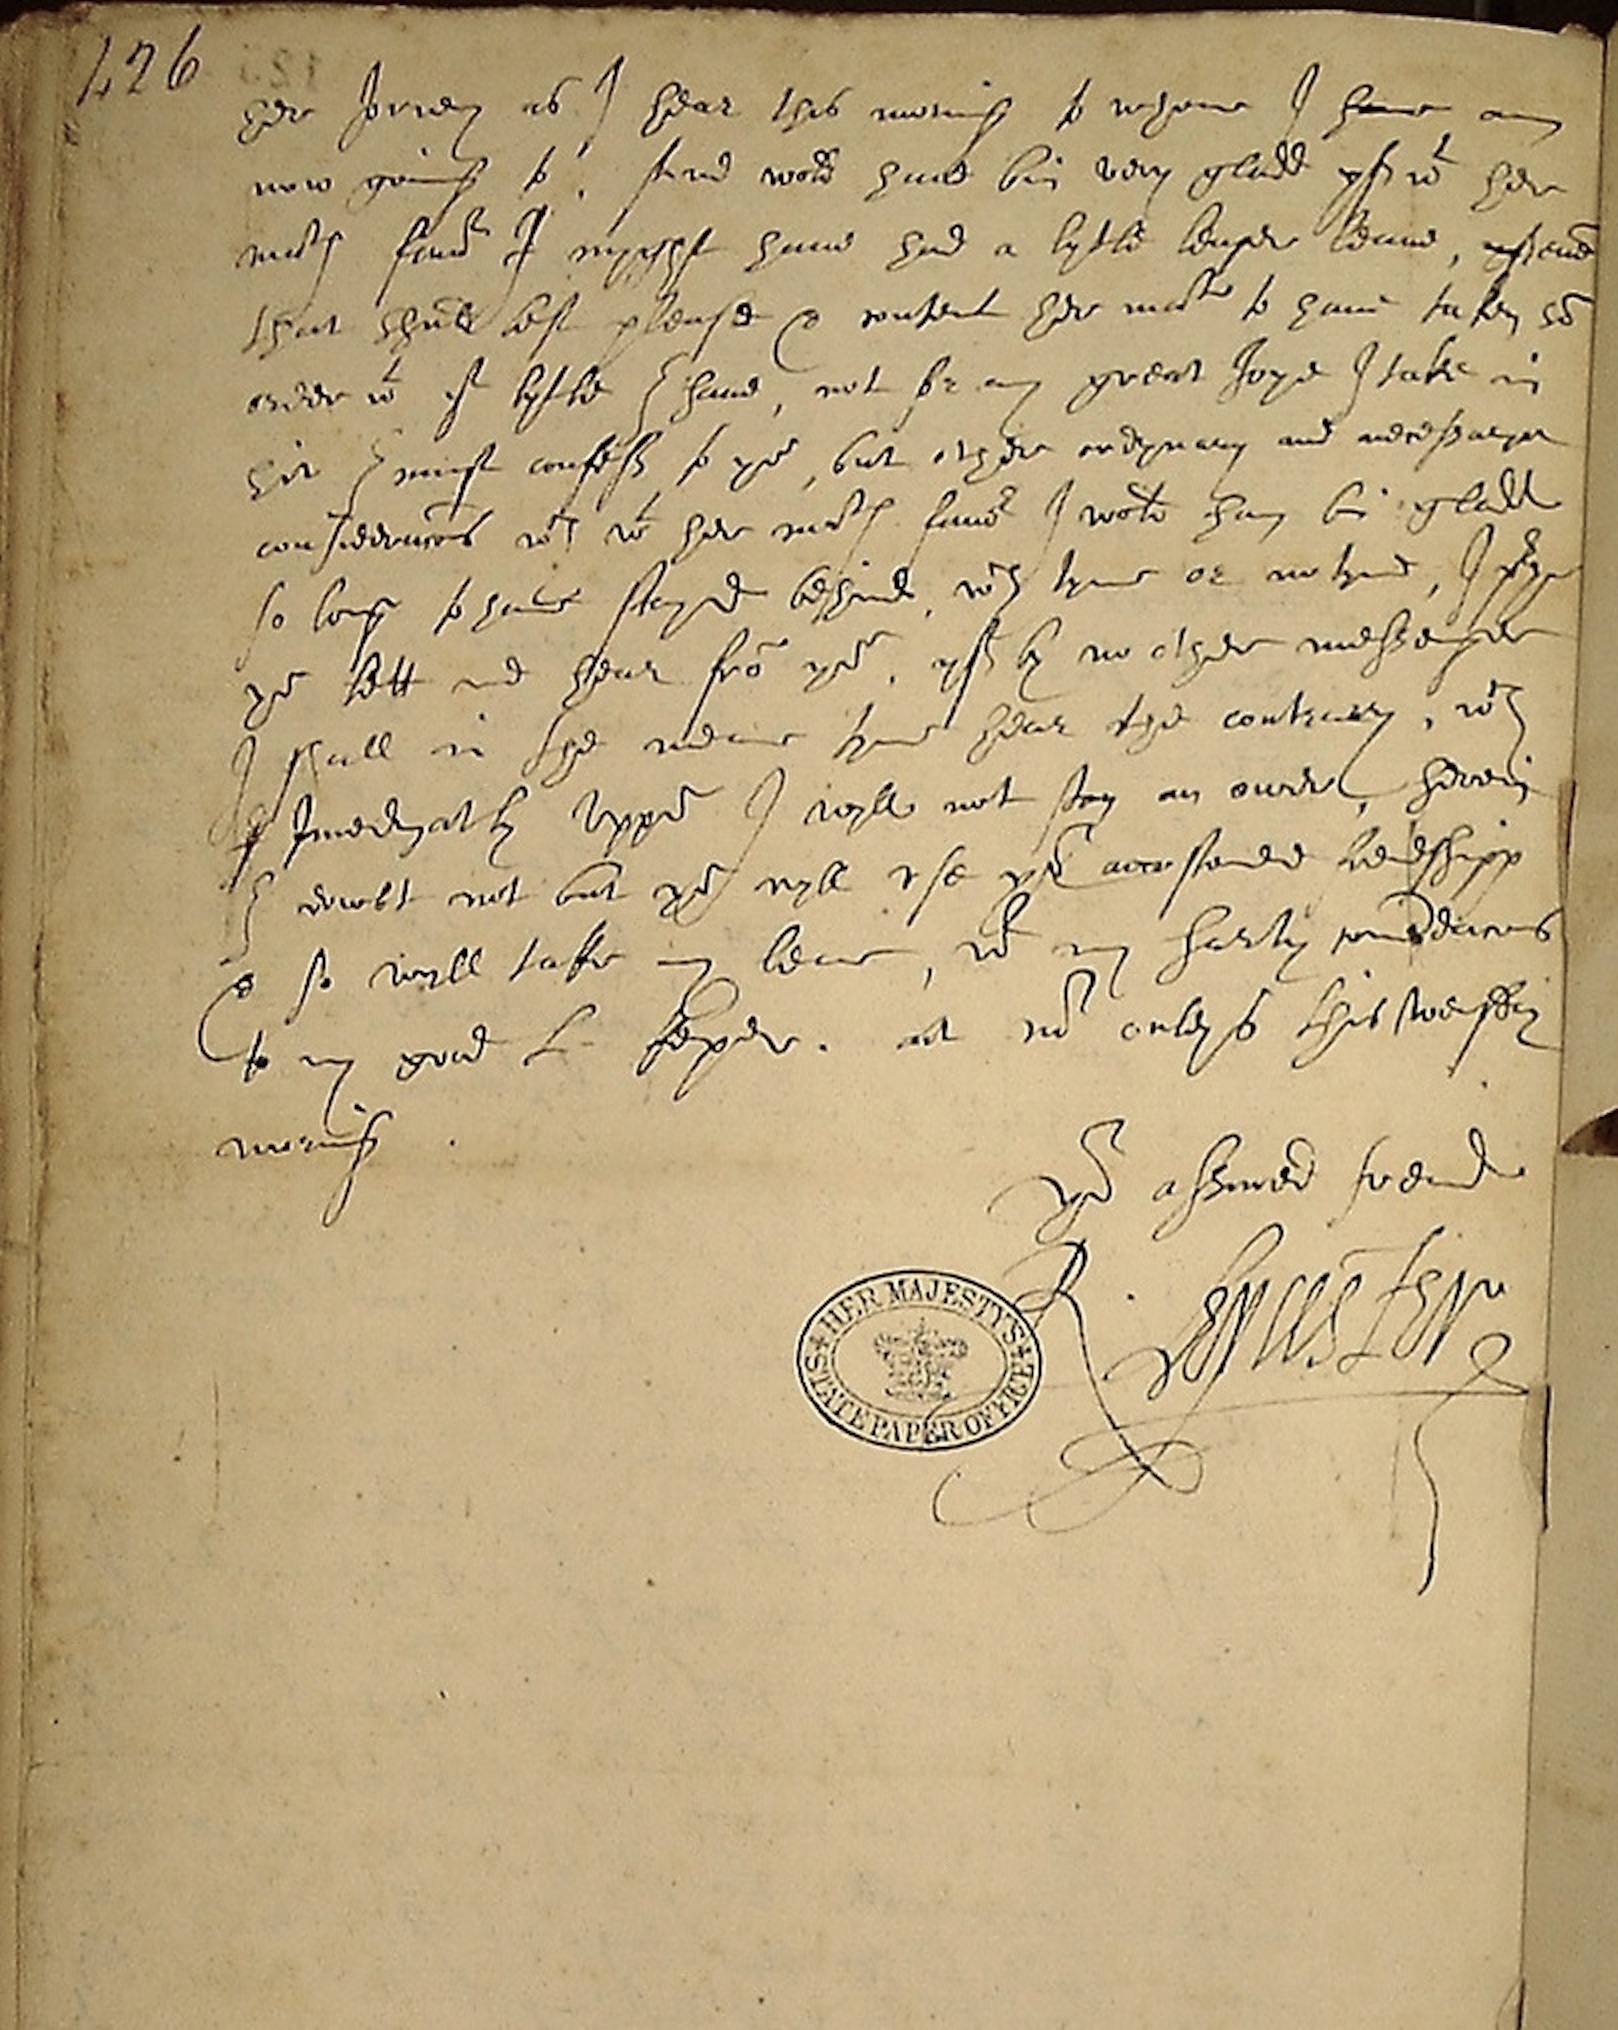 426
her Jorney as I hear this morning to whome I have am
now going to. And wold have bin very gladd yf wt her
matys favor I myght have had a lytle lenger leave,
that shuld best please & content her matie to have taken so
order wt yt lytle I have, not for any great Joye I take in
hit I must confess to you, but other ordynary and necessarye
consideracons wch wt her matys favor I wold hav bin gladd
so long to have stayed behind, wch tyme or no tyme, I pray
you lett me hear fro you. yf by no other messenger
I shall in the meane tyme hear the contrary, wch
Imedyatly uppon I wyll not stay an ower, herein
I doubt not but you wyll use yor accustomed frendshipp
& so wyll take my leave, wt my harty comendacons
to my good L keper. at this
morning.
yor assured frend
R. Leycester
HER MAJESTY'S STATE PAPER OFFICE